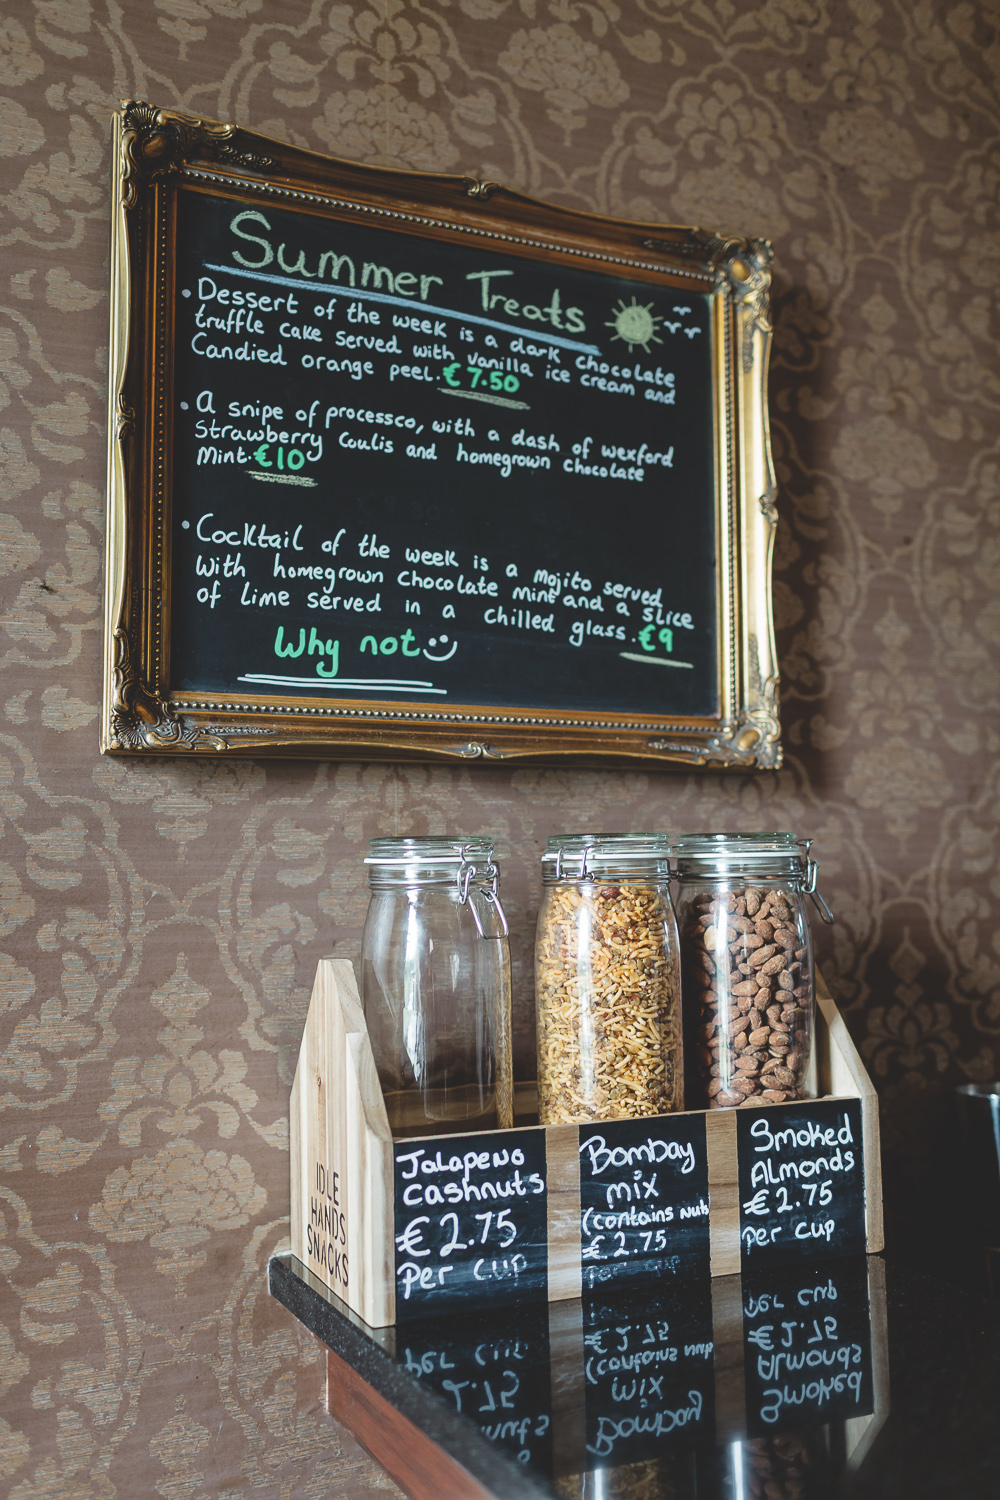 Summer Treats
• Dessert of the week is a dark chocolate
truffle cake served with vanilla ice cream and
Candied orange peel. € 7.50
• A snipe of processco, with a dash of wexford
Strawberry Coulis and homegrown chocolate
Mint. €10
• Cocktail of the week is a Mojito served
With homegrown Chocolate mint and a slice
of Lime served in a chilled glass. €9
Why not
IDLE
HANDS
SNACKS
Jalapeno
Cashnuts
€ 2.75
Per cup
BomBay
mix
(contains nuts
€ 2.75
Per cup
Smoked
Almonds
€ 2.75
Per cup